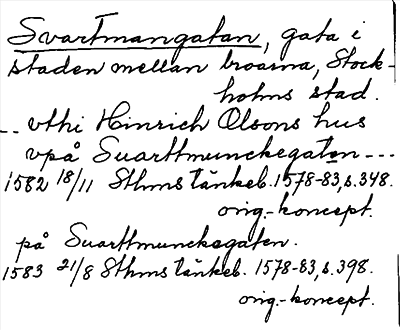 Svartmangatan, gata i
staden mellan broarna, Stock-
holms stad.
-- vthi Hinrich Olsons hus
vpå Suarttmunckegaten ---
1582 18/11 Sthms tänkeb. 1578-83, s. 348.
orig.-koncept.
på Suarttmunckagaten.
1583 21/8 Sthms tänkeb. 1578-83, s. 398.
orig.-koncept.